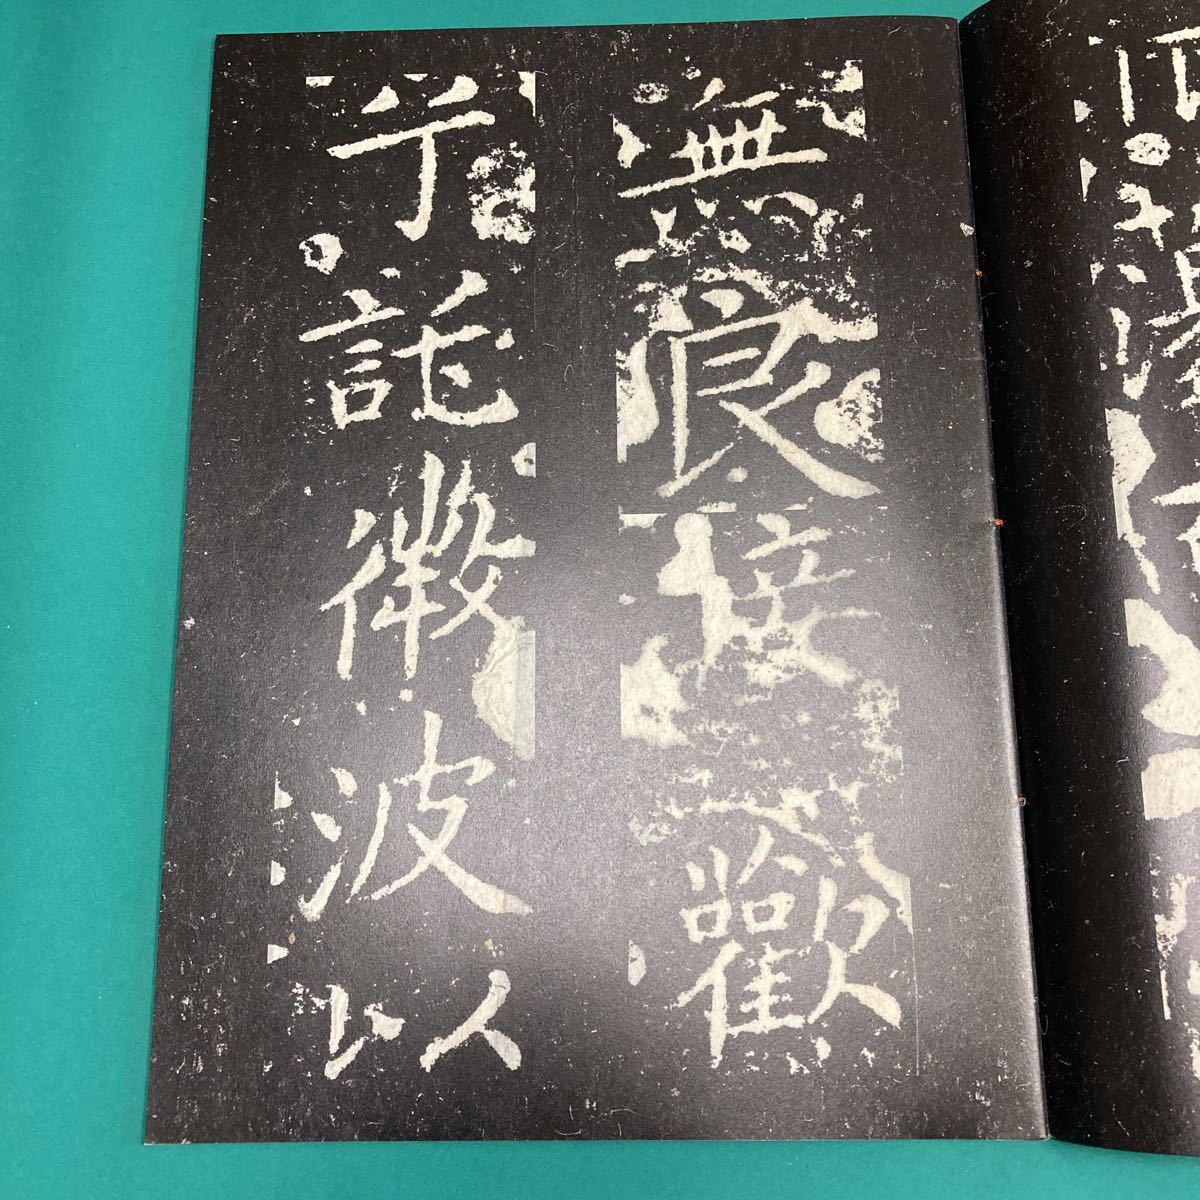 無良接歡
兮託微波以